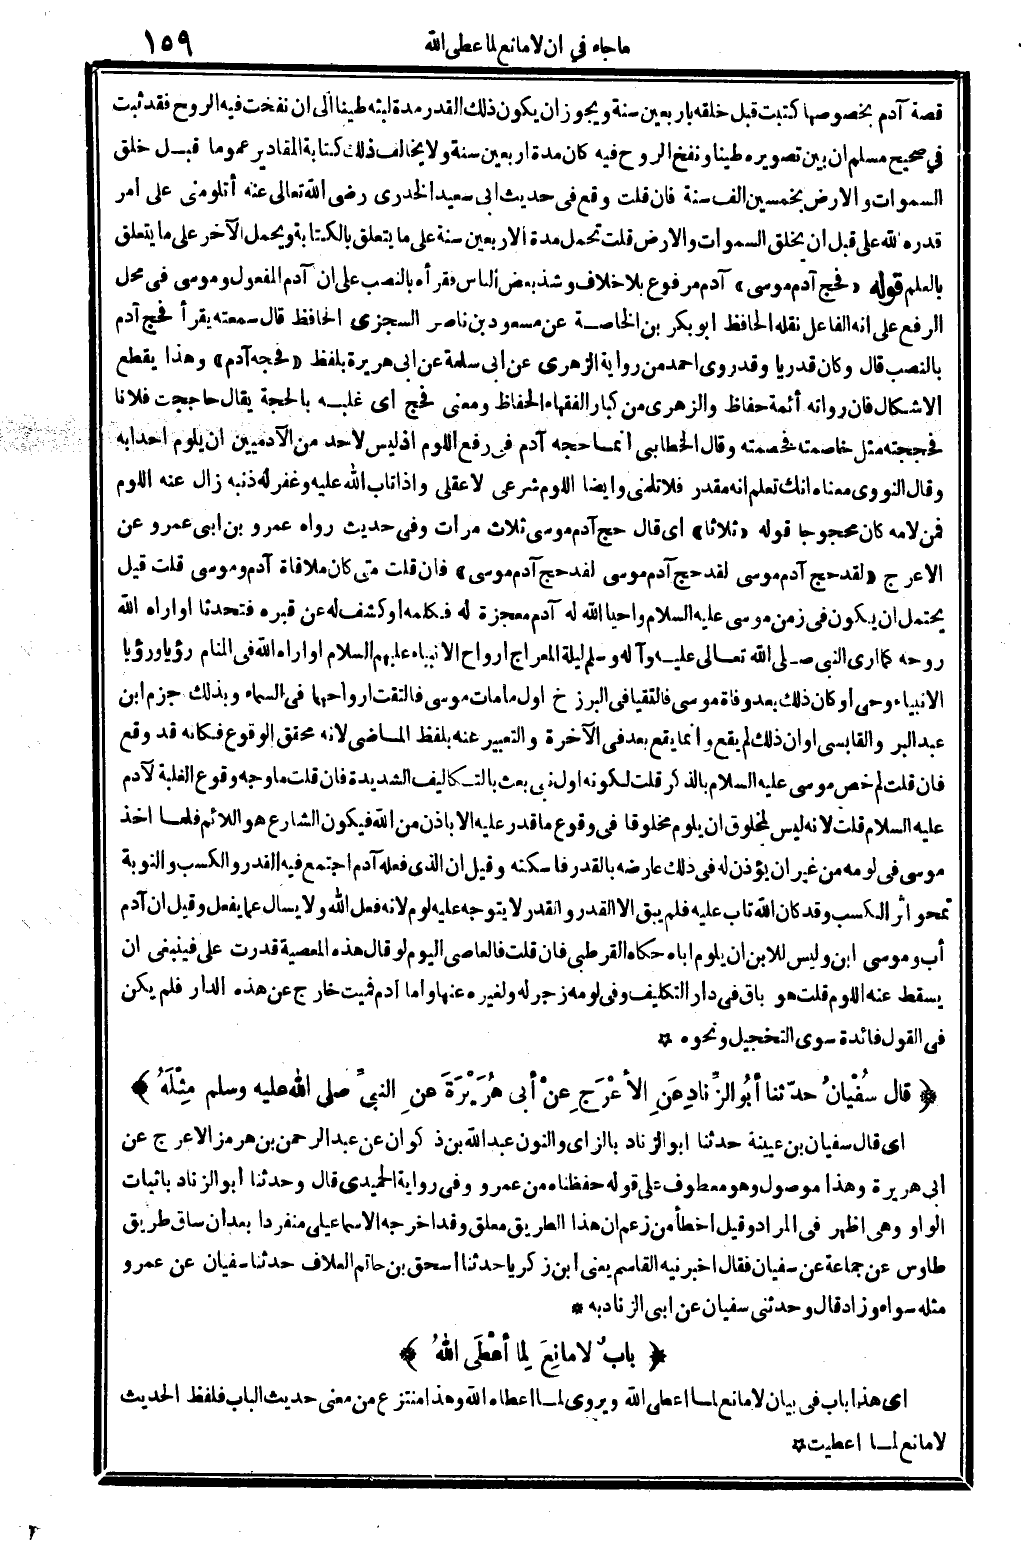 ماجاء في ان لامانع لما عطى الله ١٥٩
قصة آدم بخصوصها كتبت قبل خلقه باربعين سنة ويجوز ان يكون ذلك القدر مدة لبثه طينا الى ان نفخت فيه الروح فقد ثبت
في صحيح مسلم ان بين تصويره طينا ونفخ الروح فيه كان مدة اربعين سنة ولا يخالف ذلك كتابة المقادير عموما قبل خلق
السموات والارض بخمسين الف سنة فان قلت وقع فى حديث ابى سعيد الخدرى رضى الله تعالى عنه أتلومنى على أمر
قدره الله على قبل ان يخلق السموات والارض قلت تحمل مدة الاربعين سنة على ما يتعلق بالكتابة ويحمل الآخر على ما يتعلق
بالعلم قوله «فحج آدم موسى» آدم مرفوع بلا خلاف وشذ بعض الناس فقرأه بالنصب على ان آدم المفعول وموسى فى محل
الرفع على انه الفاعل نقله الحافظ ابو بكر بن الخاصة عن مسعود بن ناصر السجزى الحافظ قال سمعته يقرأ فحج آدم
بالنصب قال وكان قدريا وقد روى احمد من رواية الزهرى عن ابى سلمة عن ابى هريرة بلفظ «فحجه آدم» وهذا يقطع
الاشكال فان رواته أئمة حفاظ والزهرى من كبار الفقهاء الحفاظ ومعنى فحج اى غلبه بالحجة يقال حاججت فلانا
فحججته مثل خاصمته فخصمته وقال الخطابى انما حجه آدم فى رفع اللوم اذ ليس لاحد من الآدميين ان يلوم احدابه
وقال النووى معناه انك تعلم انه مقدر فلا تلمنى وايضا اللوم شرعى لا عقلى واذا تاب الله عليه وغفر له ذنبه زال عنه اللوم
فمن لامه كان محجوجا قوله «ثلاثا» أى قال حج آدم موسى ثلاث مرات وفى حديث رواه عمرو بن ابى عمرو عن
الاعرج «لقد حج آدم موسى لقد حج آدم موسى لقد حج آدم موسى» فان قلت متى كان ملاقاة آدم وموسى قلت قيل
يحتمل ان يكون فى زمن موسى عليه السلام واحيا الله له آدم معجزة له فكلمه او كشف له عن قبره فتحدثا اواراه الله
روحه كما ارى النبى صلى الله تعالى عليه وآله وسلم ليلة المعراج ارواح الانبياء عليهم السلام اواراه الله فى المنام رؤيا ورؤيا
الانبياء وحى أوكان ذلك بعد وفاة موسى فالتقيا فى البرزخ اول مامات موسى فالتقت ارواحهما فى السماء وبذلك جزم ابن
عبد البر والقابسى اوان ذلك لم يقع وانما يقع بعد فى الآخرة والتعبير عنه بلفظ الماضى لانه محقق الوقوع فكانه قد وقع
فان قلت لم خص موسى عليه السلام بالذكر قلت لكونه اول نبى بعث بالتكاليف الشديدة فان قلت ما وجه وقوع الغلبة لآدم
عليه السلام قلت لانه ليس لمخلوق ان يلوم مخلوقا فى وقوع ما قدر عليه الا باذن من الله فيكون الشارع هو اللائم فلما اخذ
موسى فى لومه من غير ان يؤذن له فى ذلك عارضه بالقدر فاسكته وقيل ان الذى فعله آدم اجتمع فيه القدر والكسب والتوبة
تمحو اثر الكسب وقد كان الله تاب عليه فلم يبق الا القدر والقدر لا يتوجه عليه لوم لانه فعل الله ولا يسال عما يفعل وقيل ان آدم
أب وموسى ابن وليس للابن ان يلوم اباه حكاه القرطبى فان قلت فالعاصى اليوم لو قال هذه المعصية قدرت على فينبغى ان
يسقط عنه اللوم قلت هو باق فى دار التكليف وفى لومه زجر له ولغيره عنها واما آدم فميت خارج عن هذه الدار فلم يكن
فى القول فائدة سوى التخجيل ونحوه ☆
﴿ قال سُفْيانُ حدّثنا أبُو الزِّنادِ عَنِ الأَعْرَجِ عنْ أبى هُرَيْرَةَ عنِ النبيِّ صلى الله عليه وسلم مِثْلَهُ ﴾
اى قال سفيان بن عيينة حدثنا ابو الزناد بالزاى والنون عبد الله بن ذكوان عن عبد الرحمن بن هرمز الاعرج عن
ابى هريرة وهذا موصول وهو معطوف على قوله حفظناه من عمرو وفى رواية الحميدى قال وحدثنا أبو الزناد باثبات
الواو وهى اظهر فى المراد وقيل اخطأ من زعم ان هذا الطريق معلق وقد اخرجه الاسماعيلى منفردا بعد ان ساق طريق
طاوس عن جماعة عن سفيان فقال اخبرنيه القاسم يعنى ابن زكريا حدثنا اسحق بن حاتم العلاف حدثنا سفيان عن عمرو
مثله سواء وزاد قال وحدثنى سفيان عن ابى الزناد به *
﴿ بابٌ لا مانِعَ لِما أعْطَى اللهُ ﴾
اى هذا باب فى بيان لا مانع لما اعطى الله ويروى لما اعطاه الله وهذا منتزع من معنى حديث الباب فلفظ الحديث
لا مانع لما اعطيت ☆